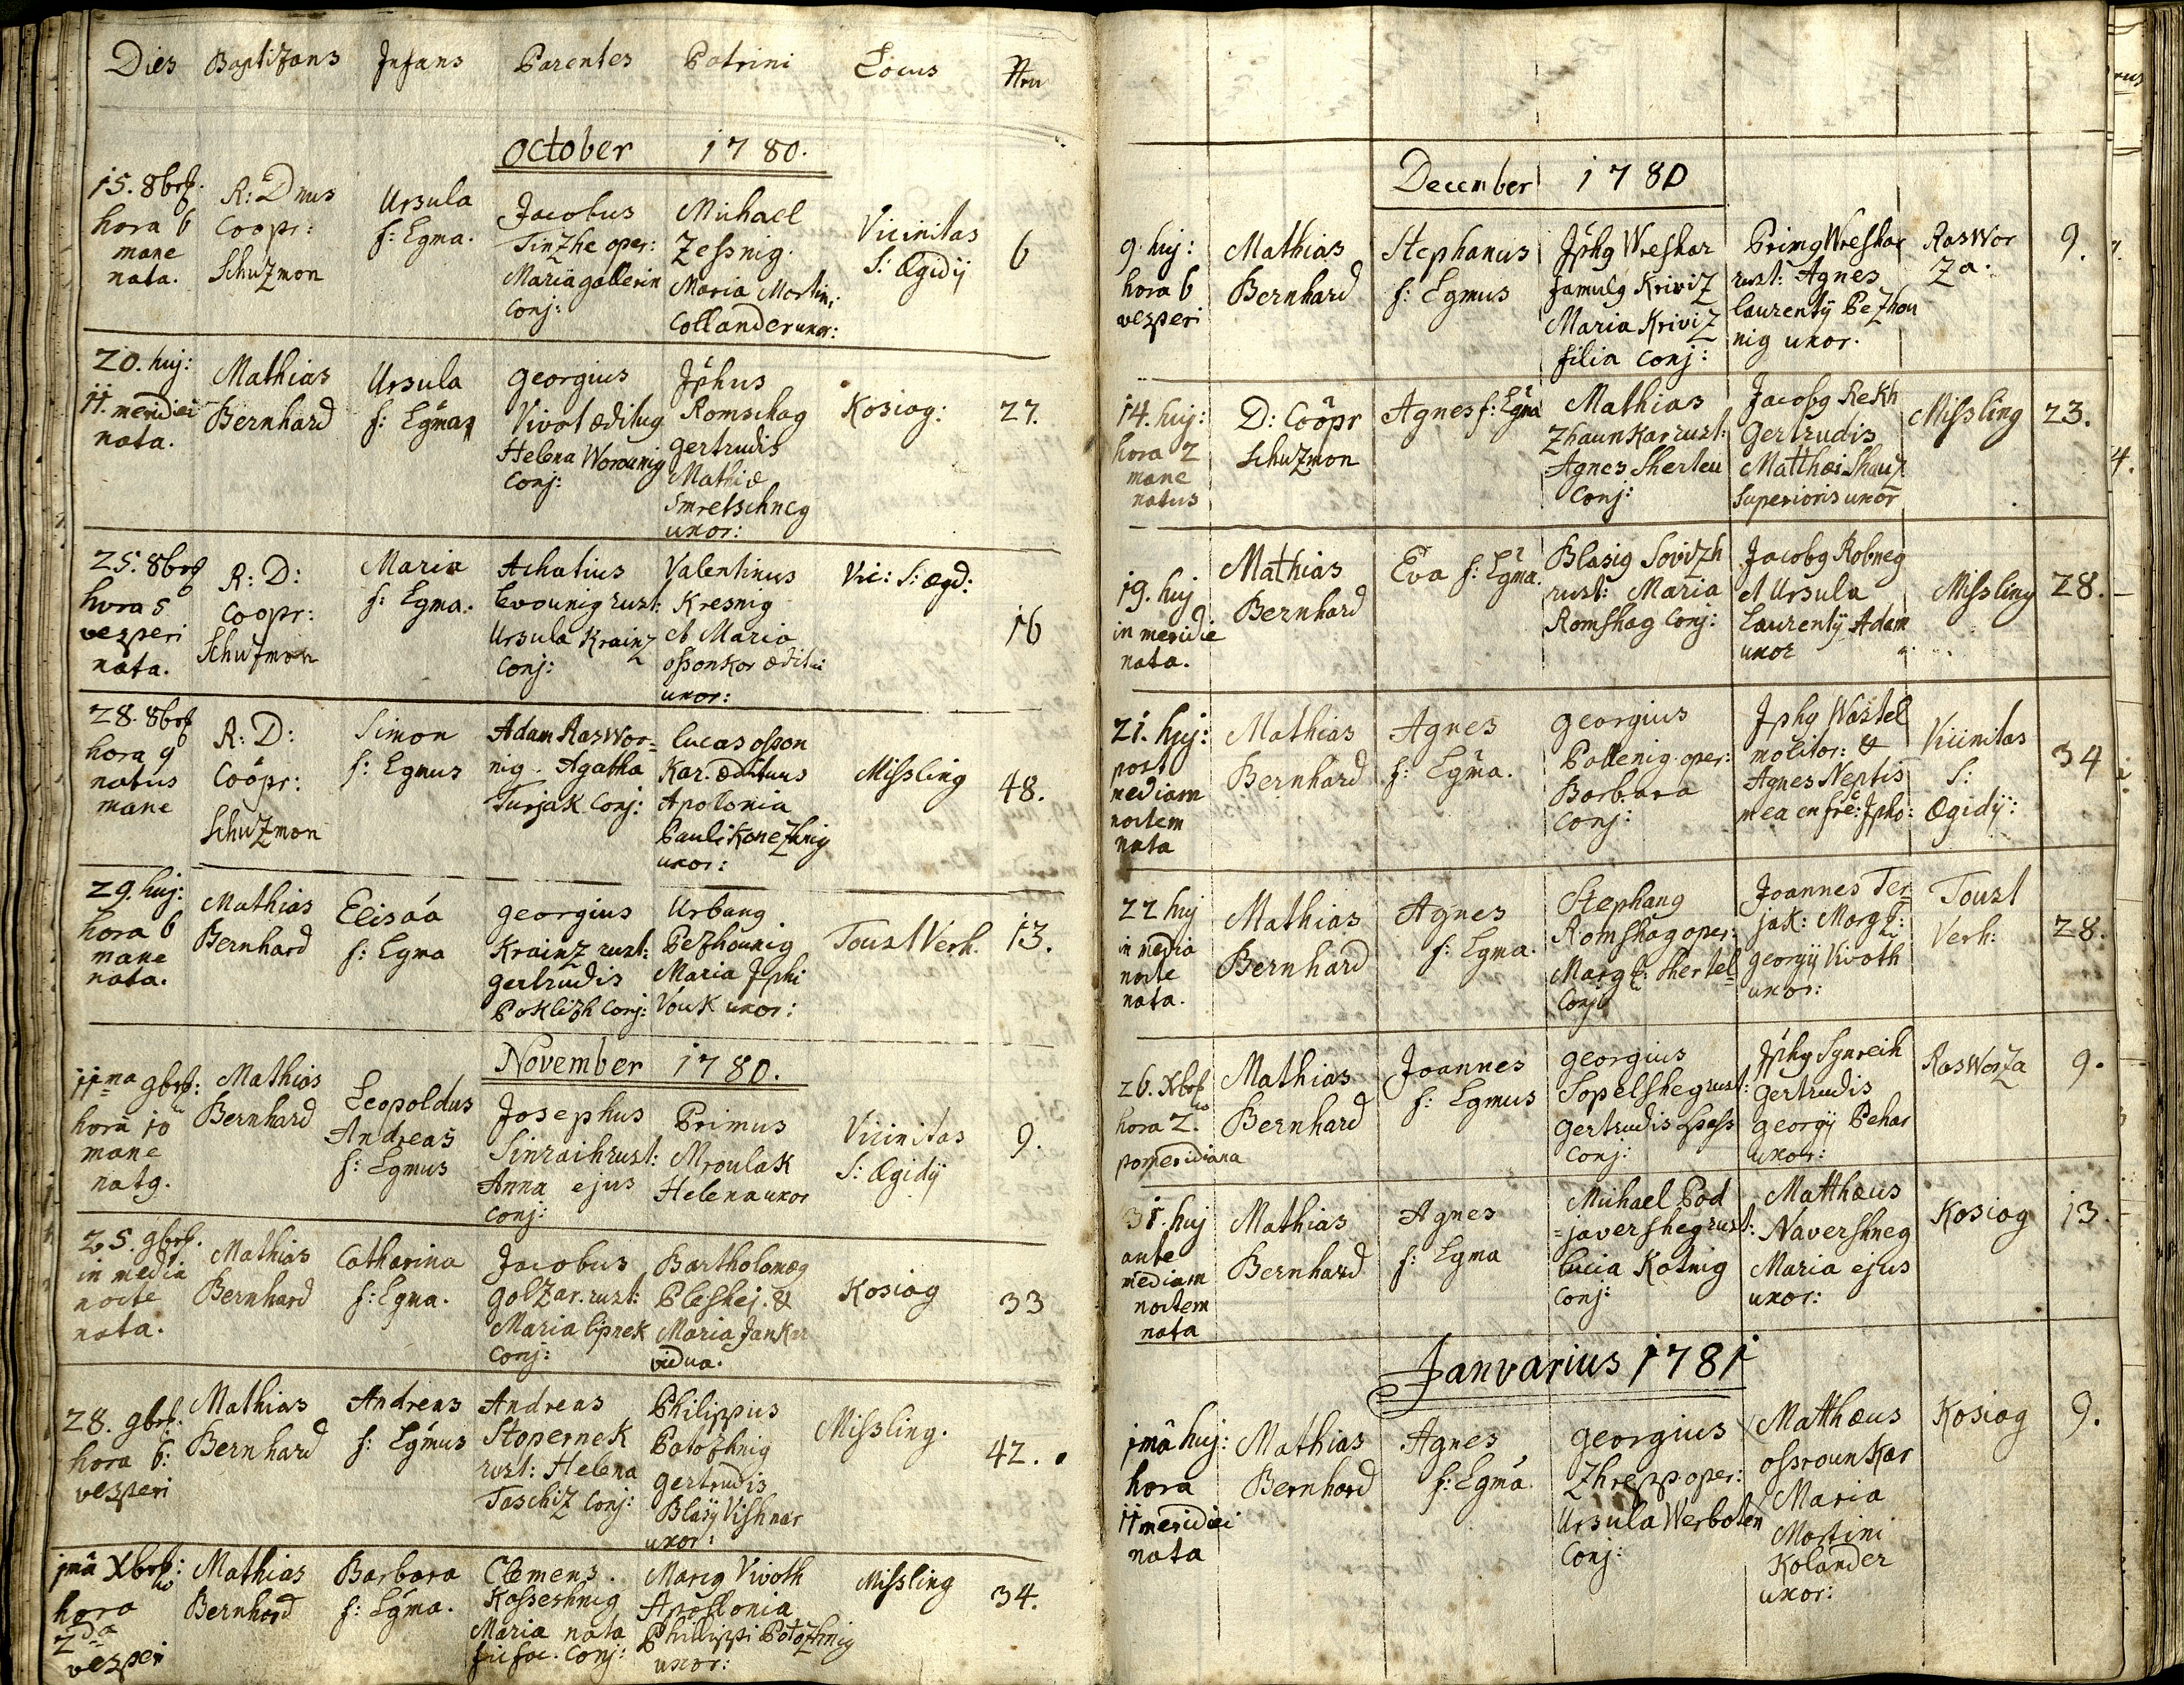 Dies Baptizans Infans Parentes Patrini Locus Nru
October 1780.
15. 8bris.
hora 6
mane
nata.
R: Dnus
Coopr:
Schuzmon
Ursula
f: Lgma.
Jacobus
Tinzhe oper:
Maria gallerin
Conj:
Michael
Zessnig.
Maria Martini
Collander uxor:
Vicinitas
S: Ægidij
6
20. huj:
11. meridiei
nata.
Mathias
Bernhard
Ursula
f: Lgma
Georgius
Vivot æditug
Helena Worounig
Conj:
Jphus
Romschag
Gertrudis
Mathiæ
Smretschneg
uxor:
Kosiag:
27.
25. 8bris
hora 5
vesperi
nata.
R: D:
Coopr:
Schuzmon
Maria
f: Lgma.
Achatius
Levounig rust:
Ursula Krainz
Conj:
Valentinus
Kresnig
et Maria
ossonkor æditui
uxor:
Vic: S: Ægd:
16
28. 8bris
hora 9
natus
mane
R: D:
Coopr:
Schuzmon
Simon
f: Lgmus
Adam Raswor=
nig. Agatha
Turjak Conj:
Lucas osson
Kar. ædituus
Apolonia
Pauli Konezhnig
uxor:
Missling
48.
29. huj:
hora 6
mane
nata.
Mathias
Bernhard
Elisaa
f: Lgma
Georgius
Krainz rust:
Gertrudis
Poklizh Conj:
Urbang
Pezhounig
Maria Jphi
Vouk uxor:
Toust Verh.
13.
November 1780.
11ma 9bris:
hora 10
mane
natg.
Mathias
Bernhard
Leopoldus
Andreas
f: Lgmus
Josephus
Sinraih rust:
Anna ejus
Conj:
Primus
Mroulak
Helena uxor
Vicinitas
S: Ægidij
9.
25. 9bris.
in media
nocte
nata.
Mathias
Bernhard
Catharina
f: Lgma.
Jacobus
Golzar. rust:
Maria lipnek
Conj:
Bartholomæg
Pleshej. &
Maria Jankar
vidua.
Kosiag
33
28. 9bris:
hora 6:
vesperi
Mathias
Bernhard
Andreas
f: Lgmus
Andreas
Stopernek
rust: Helena
Taschiz Conj:
Philippus
Potozhnig
Gertrudis
Blasij Vishnar
uxor:
Missling.
42.
1ma Xbris:
hora
2da
vesperi
Mathias
Bernhard
Barbara
f: Lgma.
Clemens.
Kasseshnig
Maria nata
Conj:
Marg Vivoth
Apollonia
Philippi Potozhnig
uxor:
Missling
34.
December 1780
9. huj:
hora 6
vesperi
Mathias
Bernhard
Stephanus
f: Lgmus
Jphg Wreshar
famulg Kriviz
Maria Kriviz
filia Conj:
Primg Wreshar
rust: Agnes
Laurentij Pezhou
nig uxor.
Raswor
za.
9.
14. huj:
hora 2
mane
natus
D: Coopr
Schuzmon
Agnes f: Lgma
Mathias
Zhaunkar rust:
Agnes Sherleu
Conj:
Jacobg Rekh
Gertrudis
Matthæi Shauz
superioris uxor
Missling
23.
19. huj
in meridie
nata.
Mathias
Bernhard
Eva f: Lgma.
Blasig Sovizh
rust: Maria
Romshag Conj:
Jacobg Robneg
et Ursula
Laurentij Adam
uxor
Missling
28.
21. huj:
post
mediam
noctem
nata
Mathias
Bernhard
Agnes
f: Lgma.
Georgius
Pollenig oper:
Barbara
Conj:
Jphg Wastel
molitor: &
Agnes Neptis
mea en fre: Jpho:
Vicinitas
S:
Ægidij:
34
22 huj
in media
nocte
nata.
Mathias
Bernhard
Agnes
f: Lgma.
Stephang
Romshag oper:
Margt: Shertel
Conj:
Joannes Ter=
jak: Margt:
Georgij Vivoth
uxor:
Toust
Verh:
28.
26. Xbris
hora 2.
pomeridiana
Mathias
Bernhard
Joannes
f: Lgmus
Georgius
Sopelsheg rust:
Gertrudis Spass
Conj:
Jphg Synreih
Gertrudis
Georgij Pehar
uxor:
Rasworza
9.
31. huj
ante
mediam
noctem
nata
Mathias
Bernhard
Agnes
f: Lgma
Michael Pod
=javersheg rust:
Lucia Kotnig
Conj:
Matthæus
Navershneg
Maria ejus
uxor:
Kosiag
13.
Janvarius 1781
1ma huj:
hora
11 meridiei
nata
Mathias
Bernhard
Agnes
f: Lgma.
Georgius
Zhrepp oper:
Ursula Werboten
Conj:
Matthæus
ossrounkar
Maria
Martini
Kolander
uxor:
Kosiag
9.